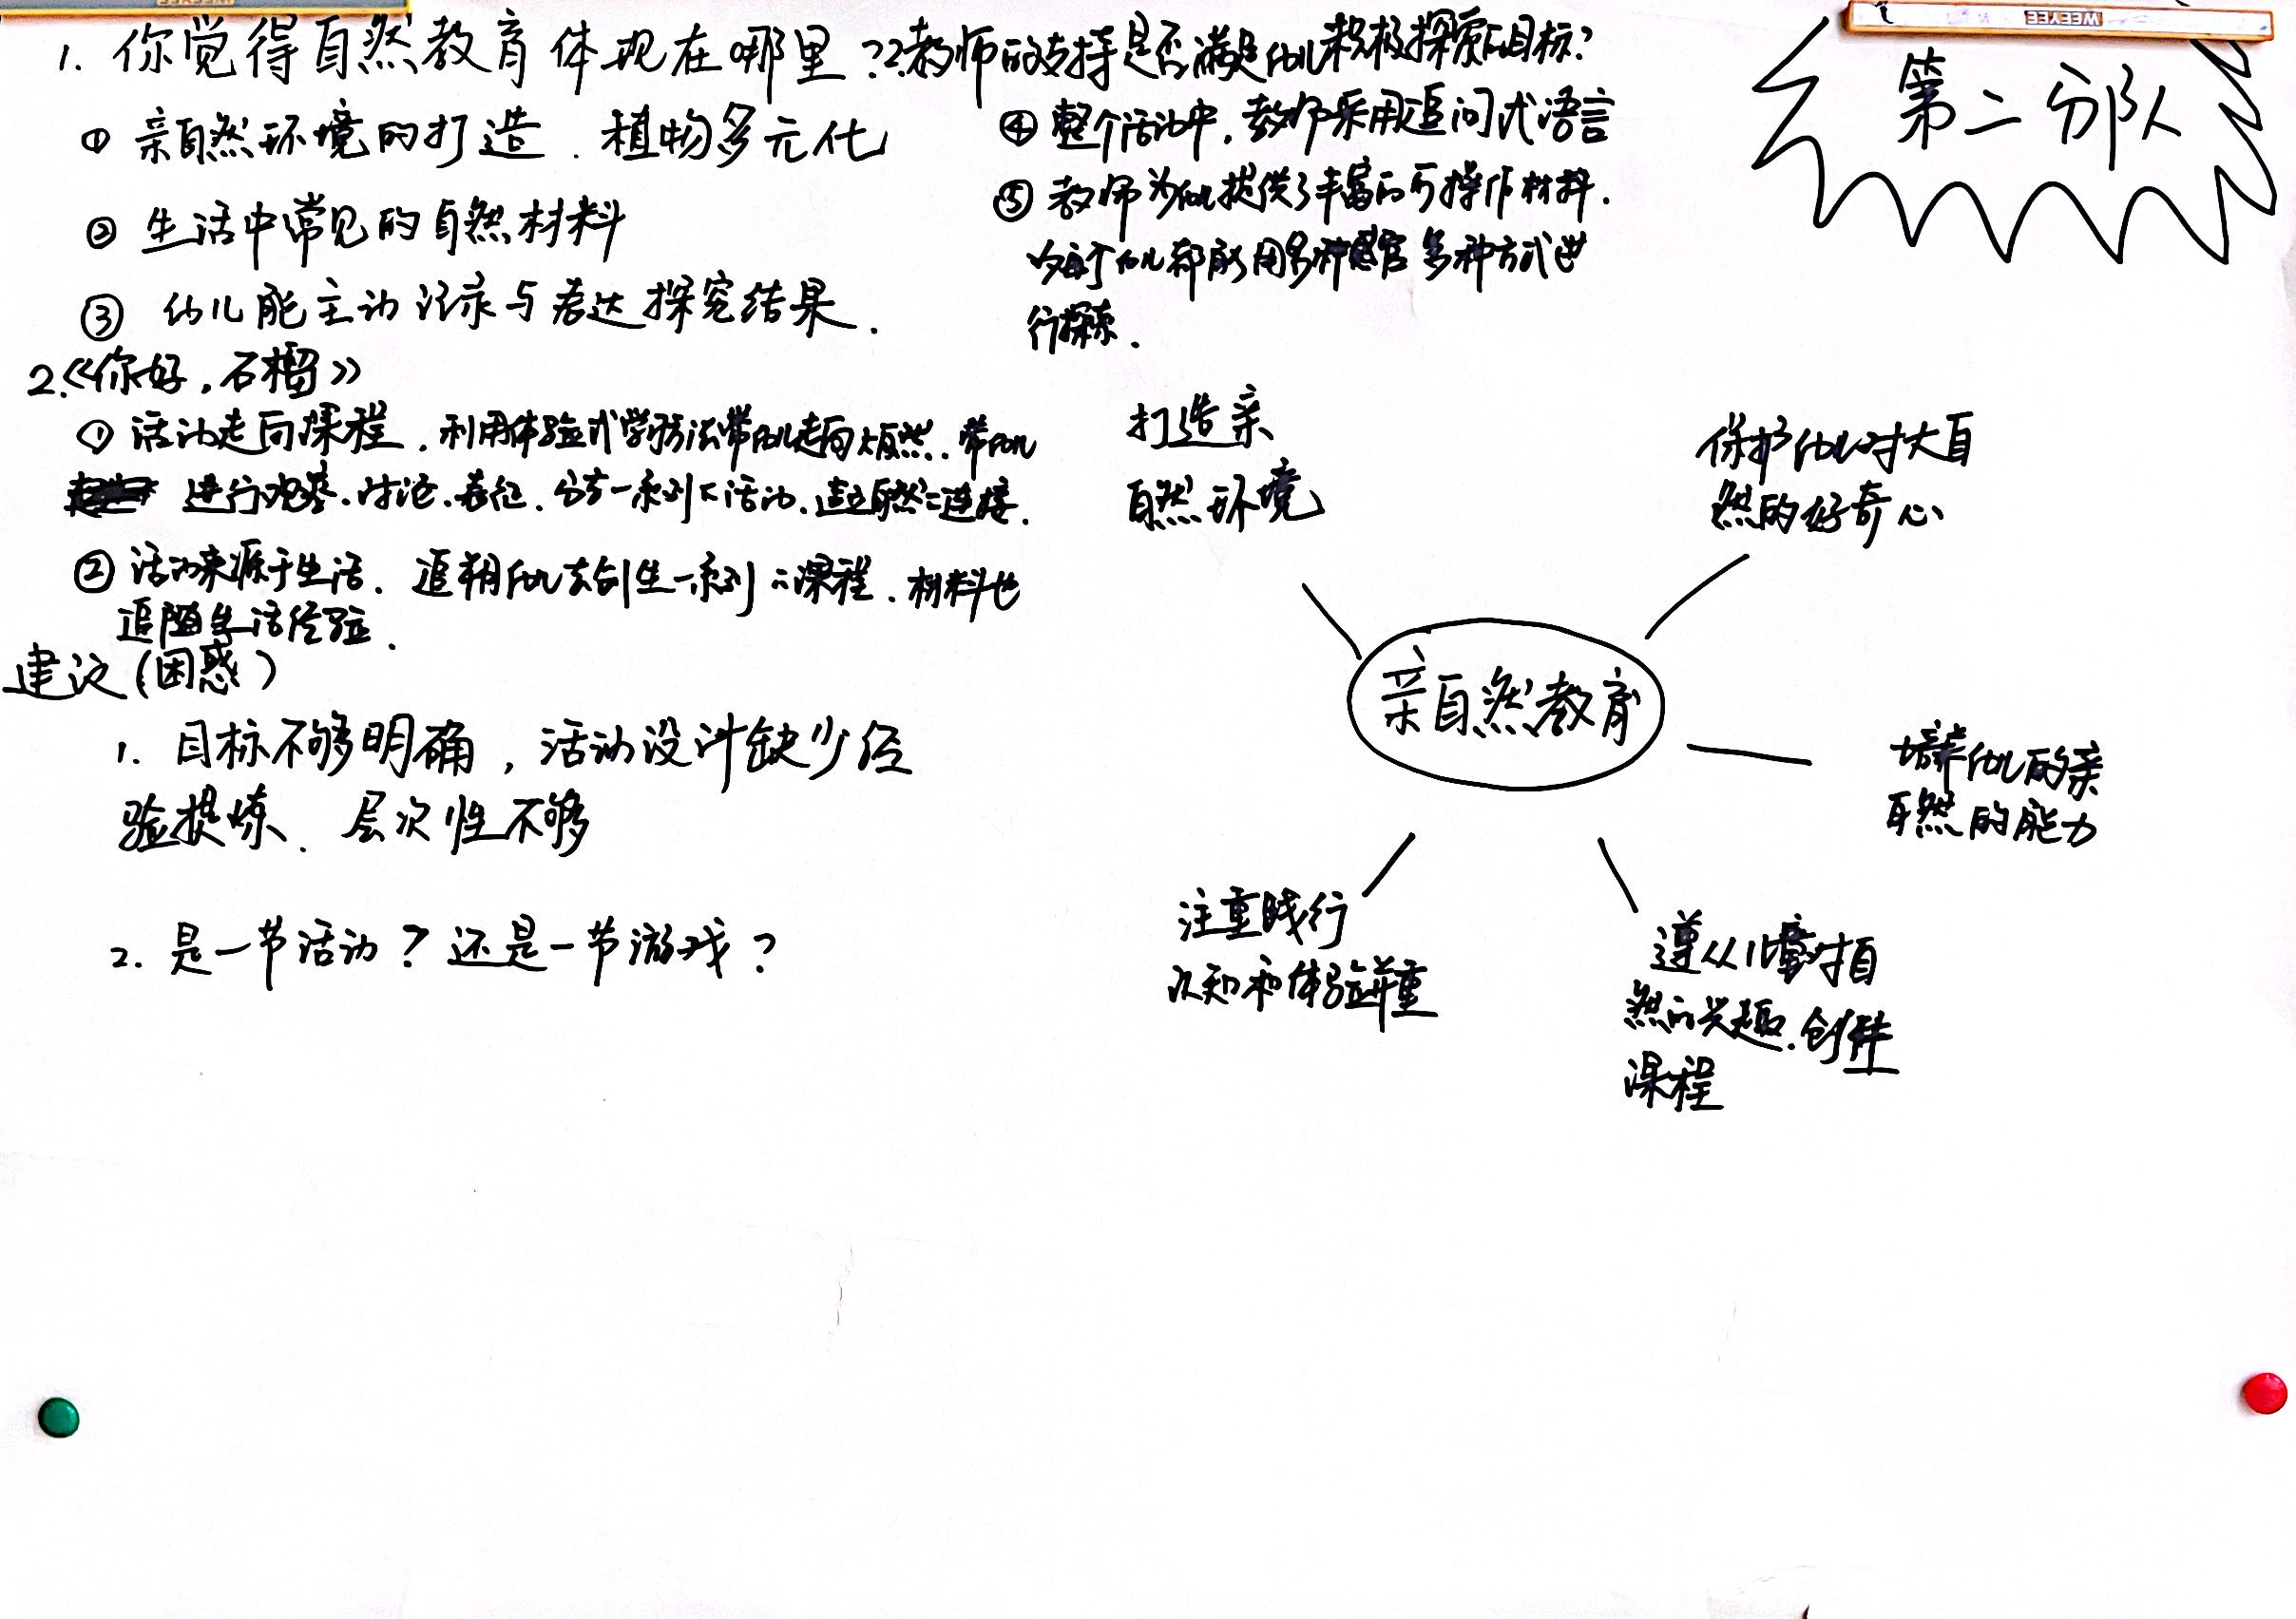 1. 你觉得自然教育体现在哪里?
① 亲自然环境的打造、植物多元化
② 生活中常见的自然材料
③ 幼儿能主动记录与表达探究结果.
2.教师的支持是否满足幼儿积极探索的目标?
④ 整个活动中,教师采用追问式语言
⑤ 教师为幼儿提供了丰富的可操作材料.
幼儿都能用多种感官多种方式进
行探索.
第二分队
2.《你好,石榴》
① 活动走向课程,利用体验式学习法带幼儿走向大自然.带幼儿
进行观察、讨论、表征、分享一系列的活动,建立自然的连接.
② 活动来源于生活.追随幼儿去创生一系列的课程.材料也
追随生活经验.
建议(困惑)
1. 目标不够明确,活动设计缺少经
验提炼、层次性不够
2. 是一节活动?还是一节游戏?
亲自然教育
打造亲
自然环境
保护幼儿对大自
然的好奇心
培养幼儿的亲
自然的能力
遵从儿童对自
然的兴趣.创生
课程
注重践行
认知和体验并重
WEEYEE